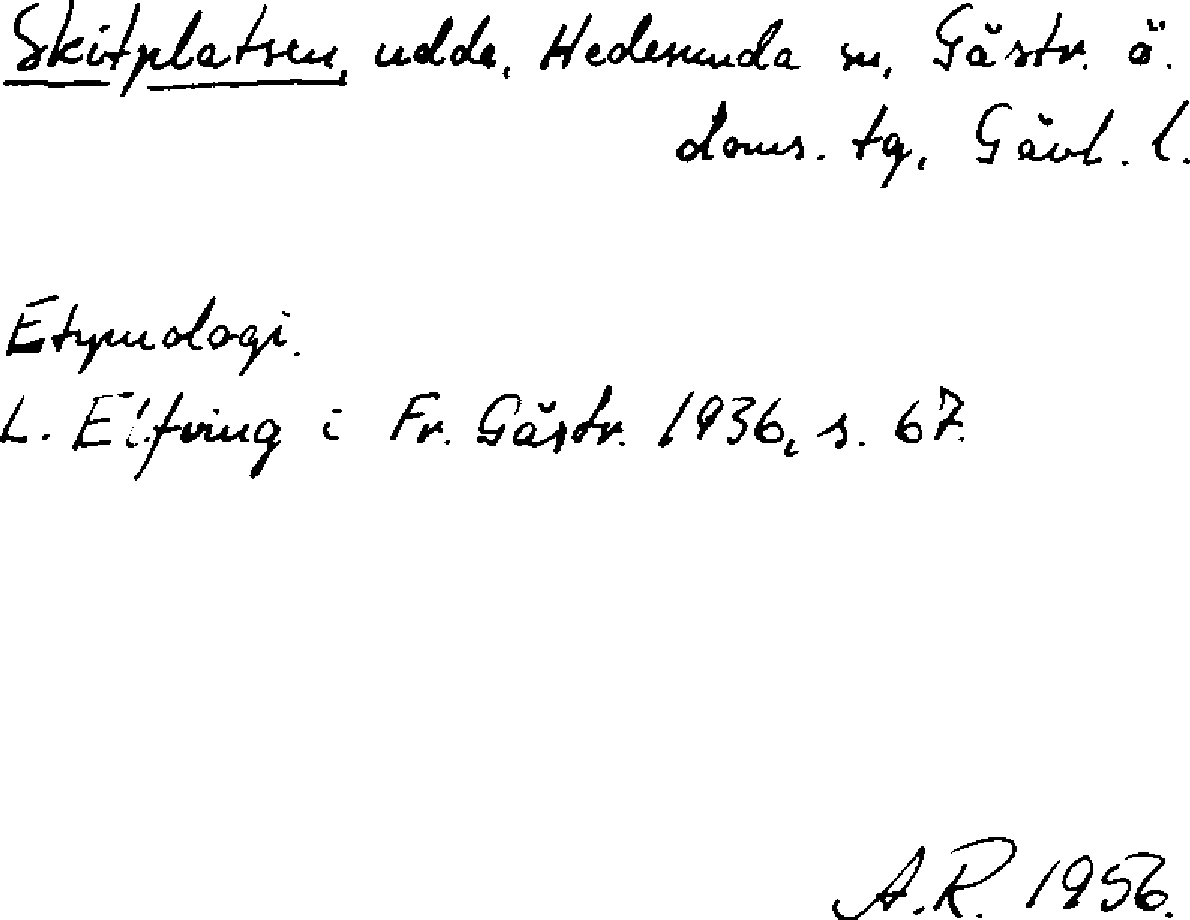 Skitplatsen, udde, Hedesunda sn, Gästr. ö.
doms. tg, Gävl. l.
Etymologi.
L. Elfving i Fr. Gästr. 1936, s. 67.
A.R. 1956.